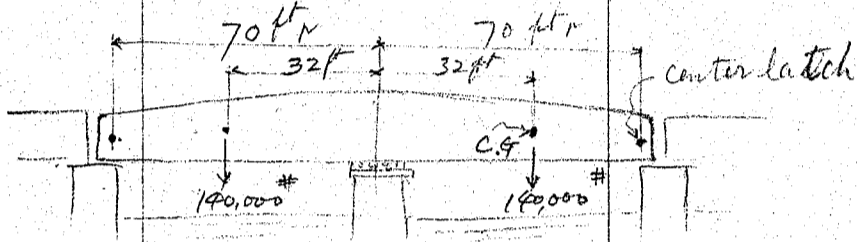 70 ft 70 ft
32ft 32ft
center latch
C.G
140,000# 140,000#